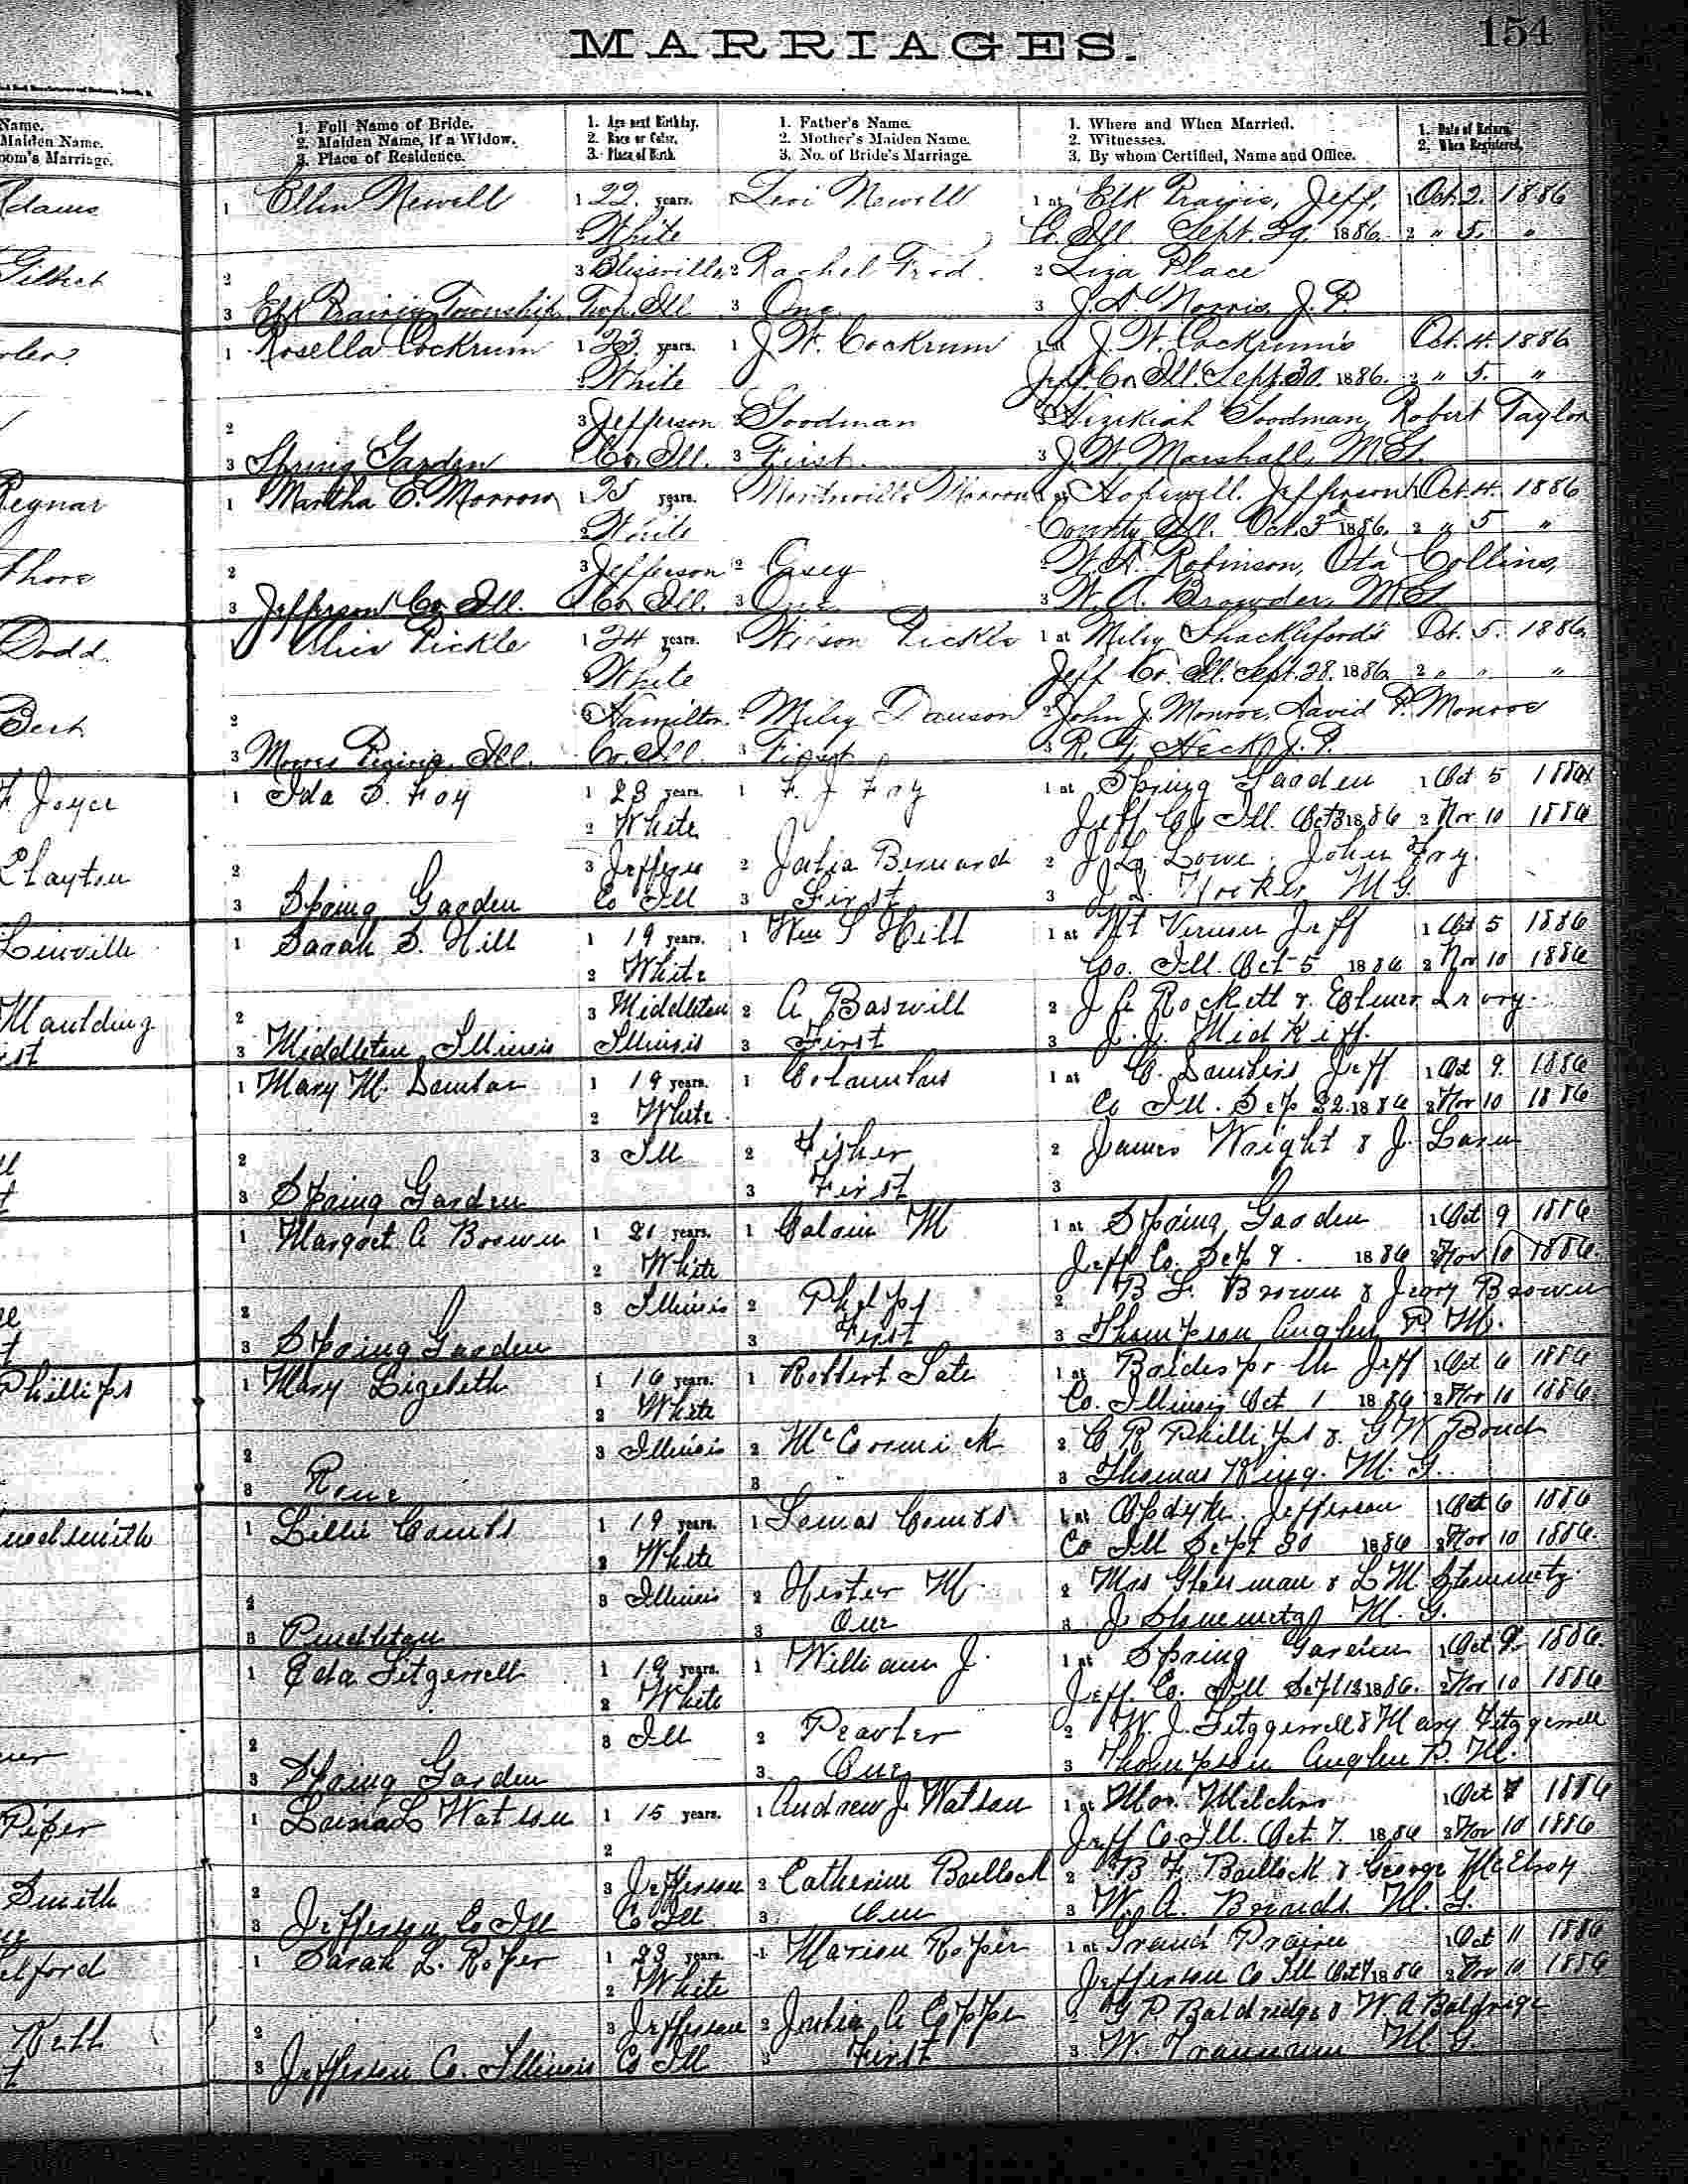 154
MARRIAGES.
Name.
Maiden Name.
oom's Marriage.
1. Full Name of Bride.
2. Maiden Name, if a Widow.
3. Place of Residence.
1. Age next Birthday.
2. Race or Color.
3. Place of Birth.
1. Father's Name.
2. Mother's Maiden Name.
3. No. of Bride's Marriage.
1. Where and When Married.
2. Witnesses.
3. By whom Certified, Name and Office.
1. Date of Return.
2. When Registered.
Adams
1 Ellen Newell 1 22 years. Levi Newell 1 at Elk Prairie, Jeff. 1 Oct. 2. 1886
2 White Co. Ill. Sept. 29. 1886. 2 " 5. "
Gilbert
2 3 Blissville 2 Rachel Frod. 2 Liza Place
3 Elk Prairie Township Twp. Ill. 3 One 3 J. A. Norris, J. P.
1 Rosella Cockrum 1 23 years. 1 J. W. Cockrum 1 at J. W. Cockrum's Oct. 4. 1886
2 White Jeff. Co. Ill. Sept. 30. 1886. 2 " 5. "
2 3 Jefferson 2 Goodman 2 Hezekiah Goodman, Robert Taylor
3 Spring Garden Co. Ill. 3 First 3 J. W. Marshall, M.G.
Regnar
1 Martha E. Morrow 1 25 years. Morrow 1 at Hopewell. Jefferson 1 Oct. 4. 1886
2 White County Ill. Oct. 3 1886. 2 " 5 "
2 3 Jefferson 2 Casey 2 W. A. Robinson, Ota Collins,
3 Jefferson Co. Ill. Co. Ill. 3 One 3 W. A. Browder, M.G.
Dodd.
1 Alice Pickle 1 24 years. 1 Pickle 1 at Milly Shackleford's Oct. 5. 1886
2 White Jeff Co. Ill. Sept. 28. 1886. 2 " " "
2 3 Hamilton 2 Milly Dawson 2 John J. Monroe, David P. Monroe
3 Moores Prairie, Ill. Co. Ill. 3 First 3 R. G. Heck, J. P.
F. Joyce
1 Ida S. Foy 1 23 years. 1 F. J. Foy 1 at Spring Garden 1 Oct 5 1886
2 White Jeff Co Ill. Oct 3 1886 2 Nov 10 1886
Clayton
2 3 Jefferson 2 Julia Bernard 2 J. L. Lowe. John Foy.
3 Spring Garden Co Ill 3 First 3 J. S. M G.
Linville
1 Sarah S. Hill 1 19 years. 1 Wm S Hill 1 at Mt Vernon Jeff 1 Oct 5 1886
2 White Co. Ill. Oct 5 1886 2 Nov 10 1886
Maulding
2 3 Middleton 2 A Baswill 2 J A Rockett &
3 Middleton Illinois Illinois 3 First 3 J. J. Midkiff.
1 Mary M. 1 19 years. 1 Columbus 1 at C. Jeff 1 Oct 9. 1886
2 White Co Ill. Sep 22. 1886 2 Nov 10 1886
2 3 Ill 2 Fisher 2 James Wright & J.
3 Spring Garden 3 First 3
1 Margret A Brown 1 21 years. 1 Calvin M 1 at Spring Garden 1 Oct 9 1886
2 White Jeff Co. Sep 9. 1886 2 Nov 10 1886.
2 3 Illinois 2 Phelps 2 B. F. Brown & Brown
3 Spring Garden 3 First 3 Thompson Anglen P. M.
Phillips
1 Mary Lizebeth 1 16 years. 1 Robbert Tate 1 at Jeff 1 Oct. 6 1886
2 White Co. Illinois Oct 1 1886 2 Nov 10 1886.
2 3 Illinois 2 McCormick 2 C R Phillips & G W Bond
3 Rome 3 3 Thomas King. M. G.
1 Lillie Combs 1 19 years. 1 Combs 1 at Opdyke. Jefferson 1 Oct 6 1886
2 White Co Ill Sept 30 1886 2 Nov 10 1886.
2 3 Illinois 2 Hester M. 2 Mrs & L M
3 Pendleton 3 One 3 J M. G.
1 Eda Fitzgerrell 1 19 years. 1 William J. 1 at Spring Garden 1 Oct 9. 1886.
2 White Jeff. Co. Ill Sept 12 1886. 2 Nov 10 1886
2 3 Ill 2 2 W. J. Fitzgerrell & Mary Fitzgerrell
3 Spring Garden 3 One 3 Thompson Anglen P. M.
Piper
1 Watson 1 15 years. 1 Andrew J. Watson 1 at 1 Oct 7 1886
2 Jeff Co Ill. Oct 7. 1886 2 Nov 10 1886.
Smith
2 3 Jefferson 2 Catherine Bullock 2 B F Bullock & George McElroy
3 Jefferson Co Ill Co Ill 3 One 3 W. A. M. G.
1 Sarah L. Roper 1 23 years. 1 Marion Roper 1 at Grand Prairie 1 Oct 11 1886
2 White Jefferson Co Ill Oct 7 1886 2 Nov 10 1886
2 3 Jefferson 2 Julia A Copple 2 G P Baldridge & W A Baldridge
3 Jefferson Co. Illinois Co Ill 3 First 3 W. M G.